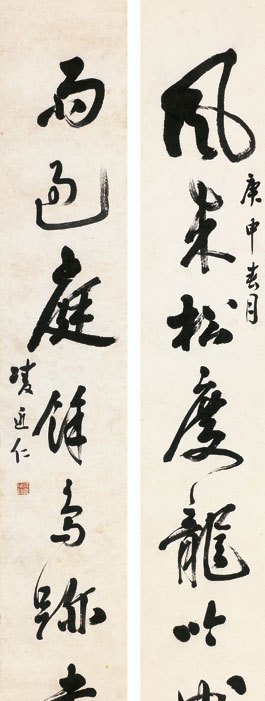 風來松度龍吟
庚申春月
雨過庭餘鳥跡
凌近仁